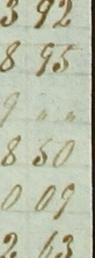 3 92
8 95
9 " "
8 50
0 09
2 63